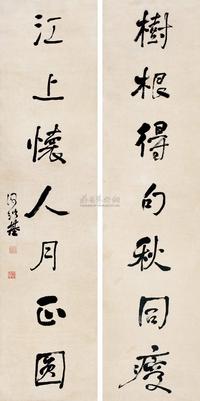 樹根得句秋同瘦
江上懷人月正圓
何紹基